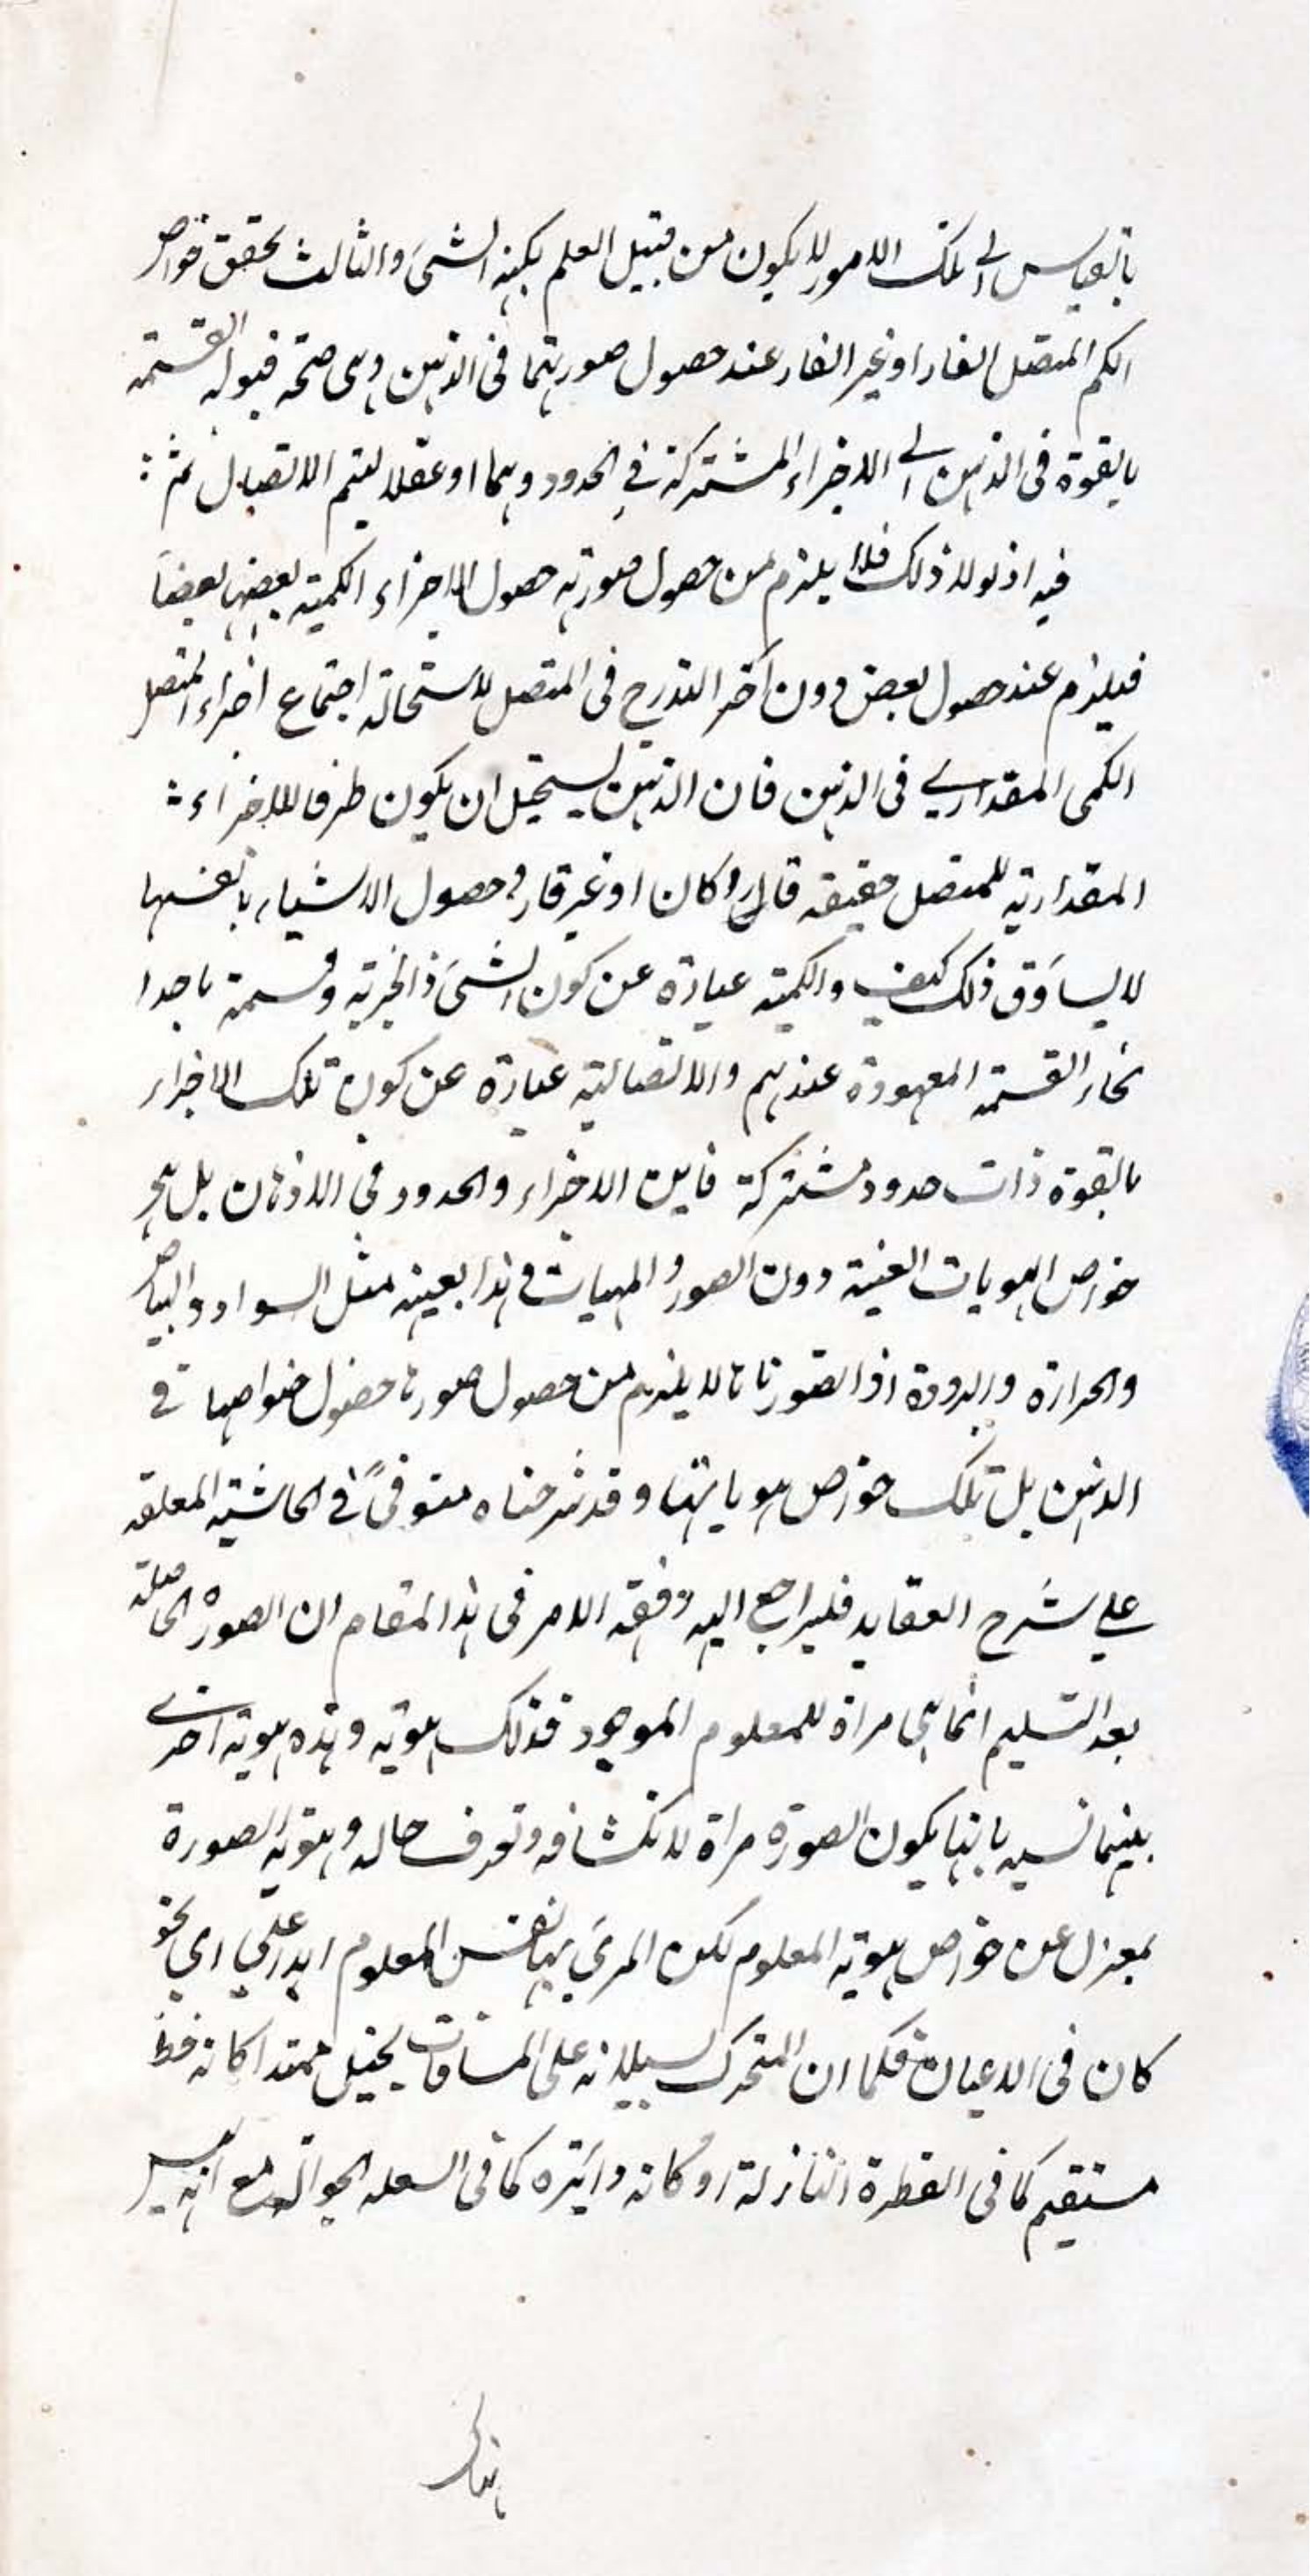 بالقياس الى تلك الامور لا يكون من قبيل العلم بكنه الشئ والثالث تحقق خواص
الكم المتصل القار او غير القار عند حصول صورتهما فى الذهن وهى صحة قبوله القسمة
بالقوة فى الذهن الى الاجزاء المشتركة في الحدود وهما او عقلا ليتم الاتصال ثم :
فيه اذ لولا ذلك فلا يلزم من حصول صورته حصول الاجزاء الكمية بعضها بعضا
فيلزم عند حصول بعض دون آخر التدرج فى المتصل لاستحالة اجتماع اجزاء المتصل
الكمى المقدارے فى الذهن فان الذهن يستحيل ان يكون ظرفا للاجزاء :
المقدارية للمتصل حقيقة قارا كان او غير قار و حصول الاشياء بانفسها
لا يساوق ذلك كيف والكمية عبارة عن كون الشئ ذا تجزية وقسمة باحد ا
نحاء القسمة المعهودة عندهم والاتصالية عبارة عن كون تلك الاجزاء
بالقوة ذات حدود مشتركة فاين الاجزاء والحدود في الاذهان بل هى
خواص الهويات العينية دون الصور والمهيات و هذا بعينه مثل السواد والبياض
والحرارة والبرودة اذا تصورناها لا يلزم من حصول صورها حصول خواصها في
الذهن بل تلك خواص هوياتها وقد شرحناه مستوفى فے الحاشية المعلقه
علي شرح العقايد فليراجع اليه وفقه الامر فى هذا المقام ان الصورة الحاصلة
بعد التسليم انما هى مراة للمعلوم الموجود فذلك هوية وهذه هوية اخرے
بينهما نسبة بانها يكون الصورة مراة لانكشافه وتعرف حاله وهوية الصورة
بمعزل عن خواص هوية المعلوم لكن المرئى بها نفس المعلوم ابدا على اى نحو
كان فى الاعيان فكما ان المتحرك لسيلانه على المسافات يخيل ممتدا كانه خط
مستقيم كما فى القطرة النازلة او كانه دائرة كما فى الشعلة الجوالة مع انه ليس
هناك